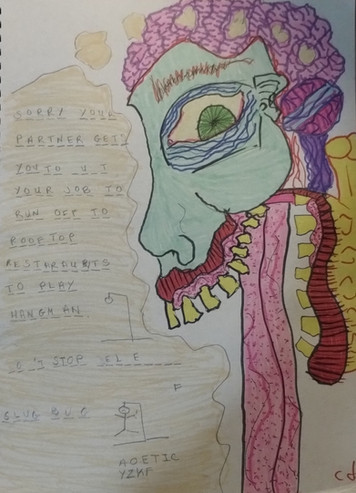 SORRY YOUR
PARTNER GETS
YOU TO
YOUR JOB TO
RUN OFF TO
ROOFTOP
RESTAURANTS
TO PLAY
HANGMAN.
STOP
F
AOETIC
YZKF